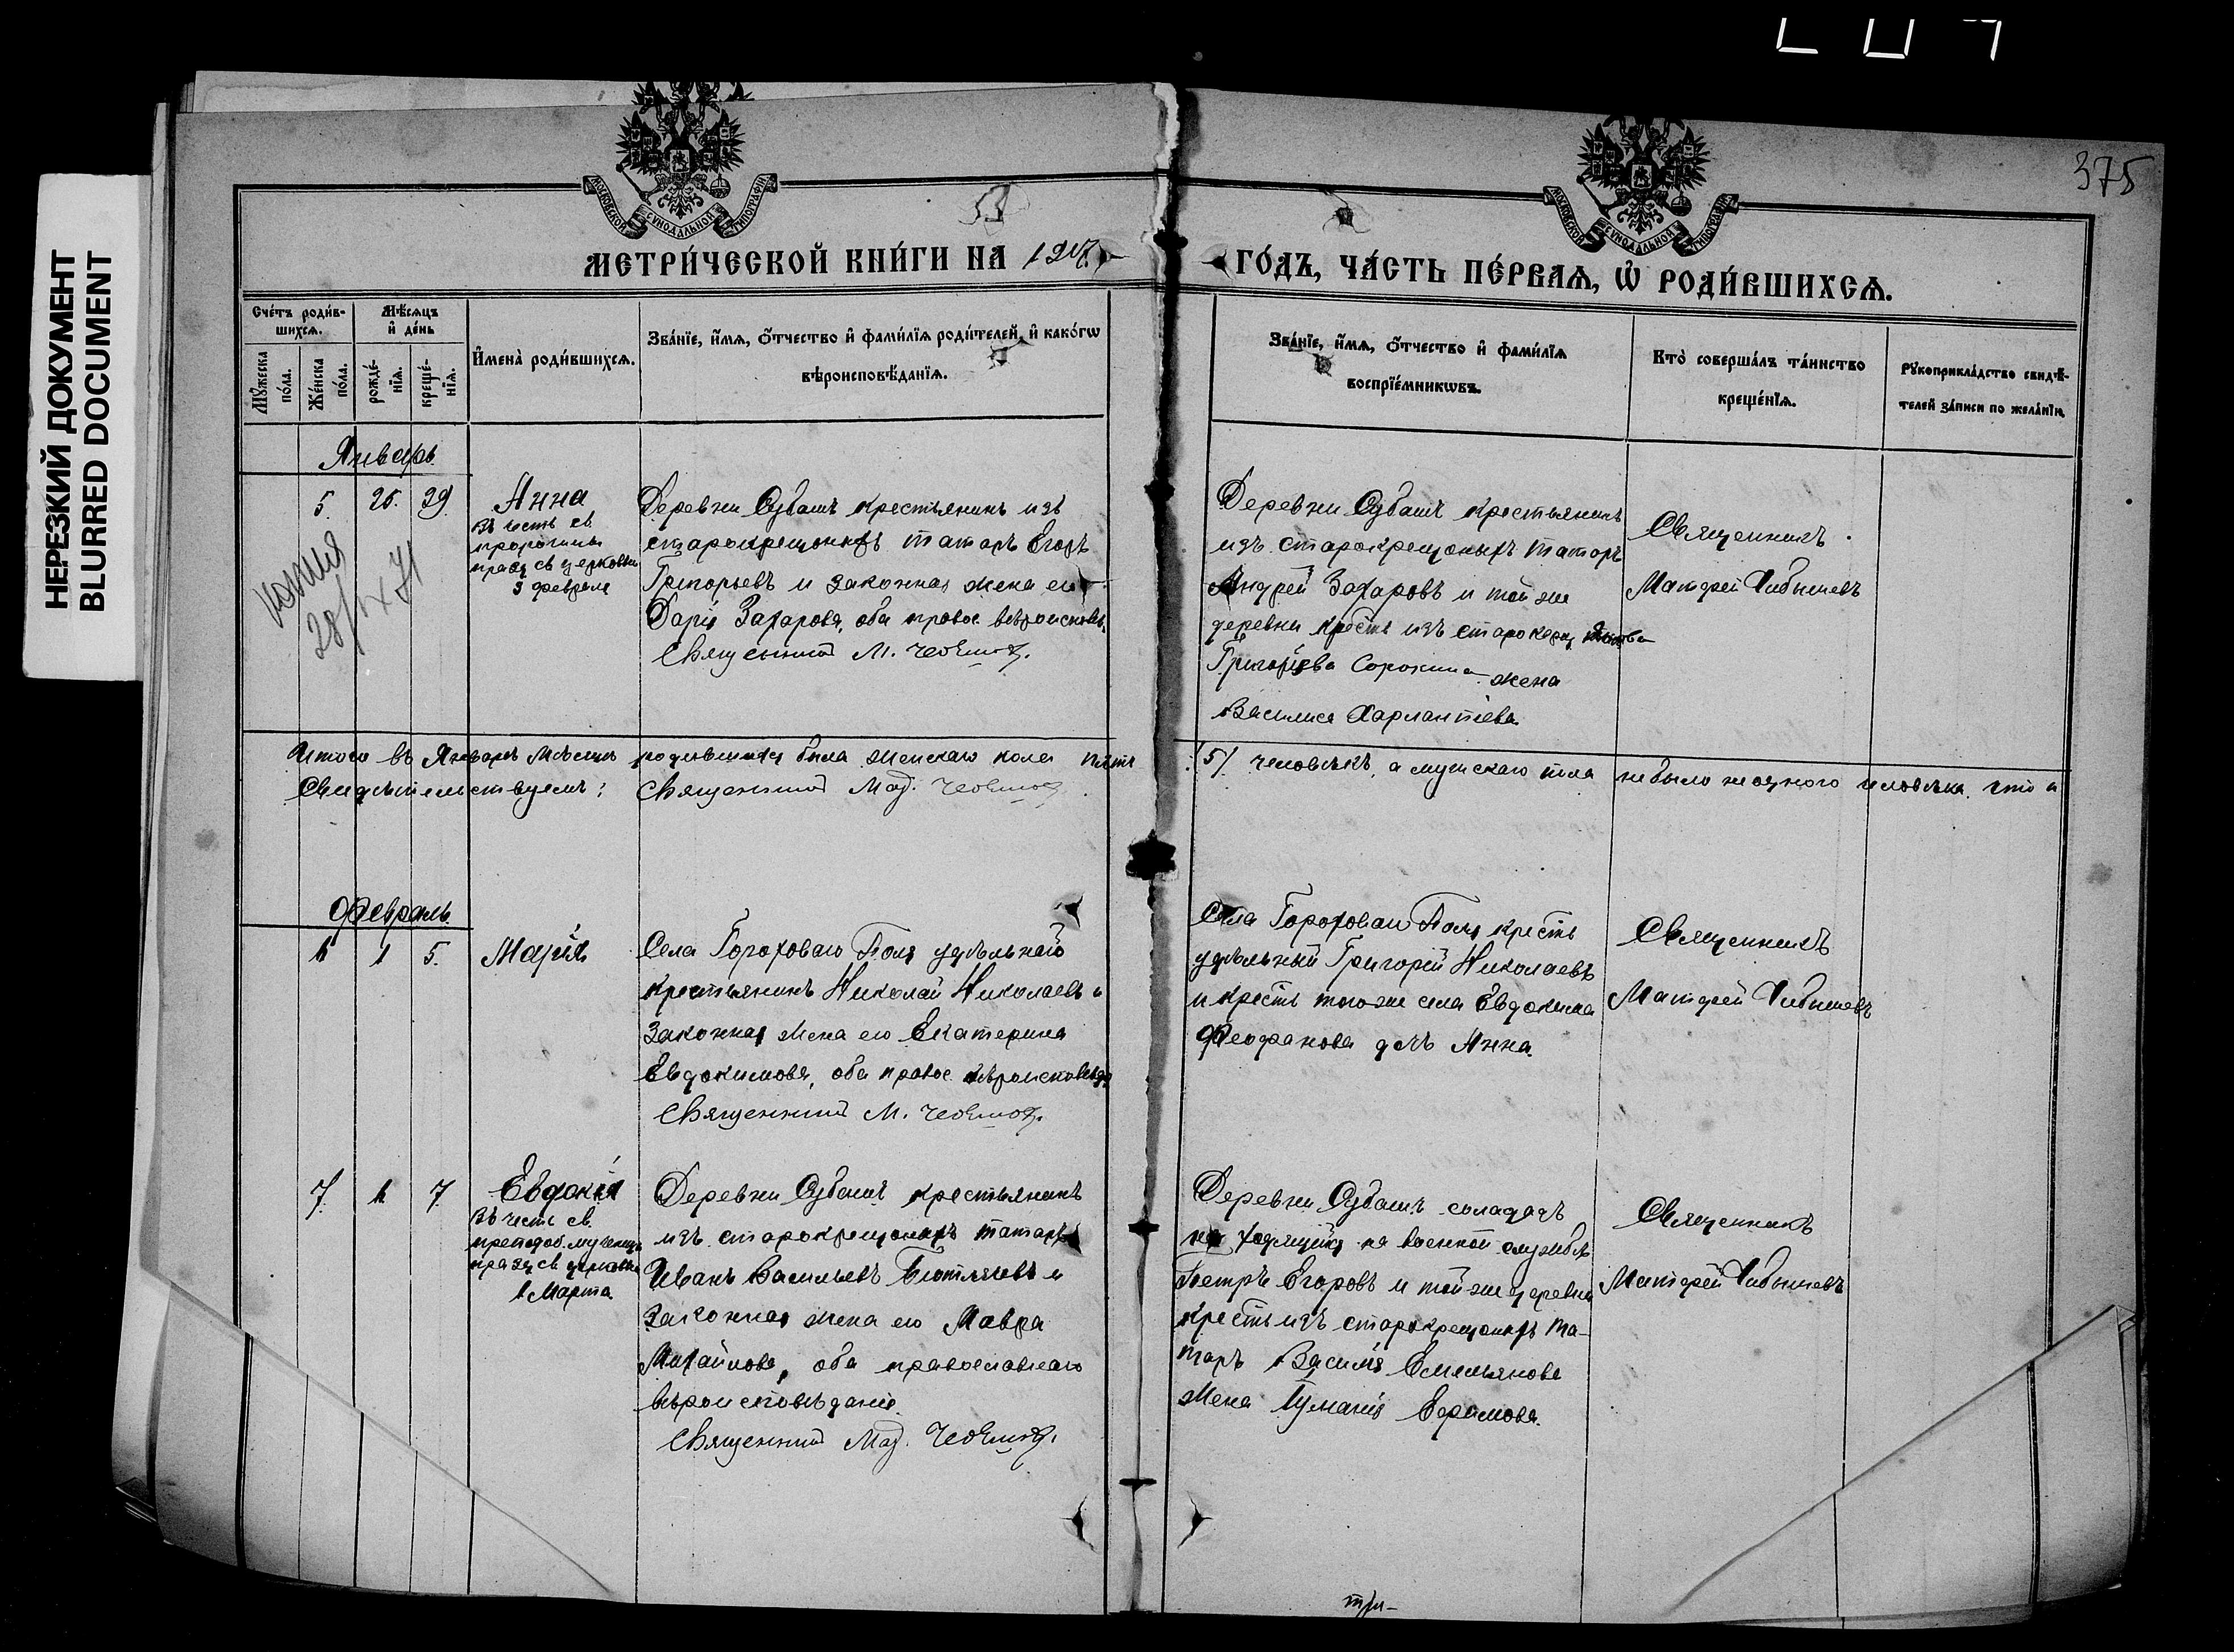 НЕРЕЗКИЙ ДОКУМЕНТ
BLURRED DOCUMENT
375
МОСКОВСКОЙ СѴНОДАЛЬНОЙ ТИПОГРАФІИ
МОСКОВСКОЙ СѴНОДАЛЬНОЙ ТИПОГРАФІИ
МЕТРИ́ЧЕСКОЙ КНИ́ГИ НА 1917.
ГО́ДЪ, ЧА́СТЬ ПЕ́РВАѦ, Ѡ҆ РОДИ́ВШИХСѦ.
Сче́тъ роди́в-
шихсѧ.
Мѣ́сѧцъ
и҆ де́нь
Мꙋ́жеска
по́ла.
Же́нска
по́ла.
рожде́-
нїѧ.
креще́-
нїѧ.
И҆мена̀ роди́вшихсѧ.
Зва́нїе, и҆́мѧ, ѻ҆́тчество и҆ фами́лїѧ роди́телей, и҆ како́гѡ
вѣроисповѣ́данїѧ.
Зва́нїе, и҆́мѧ, ѻ҆́тчество и҆ фами́лїѧ
воспрїе́мникѡвъ.
Кто̀ соверша́лъ та́инство
креще́нїѧ.
Рꙋкоприкла́дство свидѣ́-
телей за́писи по жела́нїю.
Январь.
5. 25. 29.
Анна
въ честь св.
пророчицы
празд св церковью
3 февраля
копия
28/IX 71
Деревни Субашъ крестьянинъ изъ
старокрещеныхъ татаръ Егоръ
Григорьевъ и законная жена его
Дарія Захарова, оба правос вѣроисповѣд.
Священникъ М.
Деревни Субашъ крестьянинъ
изъ старокрещеныхъ татаръ
Андрей Захаровъ и той же
деревни крест изъ старокрещ
Григорьева Сорокина жена
Василиса Харлантіева.
Священникъ
Матфей
Итого въ Январѣ мѣсяцѣ родившихся было женскаго пола пять
/5/. человѣкъ, а мужскаго пола не было не одного человѣка. что и
Свидѣтельствуемъ: Священникъ Мат.
Февраль.
6 1 5.
Марія
Села Гороховаго Поля удѣльнаго
крестьянинъ Николай Николаевъ и
законная жена его Екатерина
Евдокимова, оба правос. вѣроисповѣд
Священникъ М.
Села Гороховаго Поля крестъ
удѣльный Григорій Николаевъ
и крестъ того же села Евдокима
Феофанова дочь Анна.
Священникъ
Матфей
7. 6 7.
Евдокія
въ честь св.
преподоб. мученицы
празд св церковью
1 Марта.
Деревни Субашъ крестьянинъ
изъ старокрещеныхъ татаръ
Иванъ Васильевъ и
законная жена его Мавра
Михайлова, оба православнаго
вѣроисповѣданія.
Священникъ Мат.
Деревни Субашъ солдатъ
находящійся на военной службѣ
Петръ Егоровъ и той же деревни
крестъ изъ старокрещеныхъ та-
таръ Василія Емельянова
жена Ефимова.
Священникъ
Матфей
три-